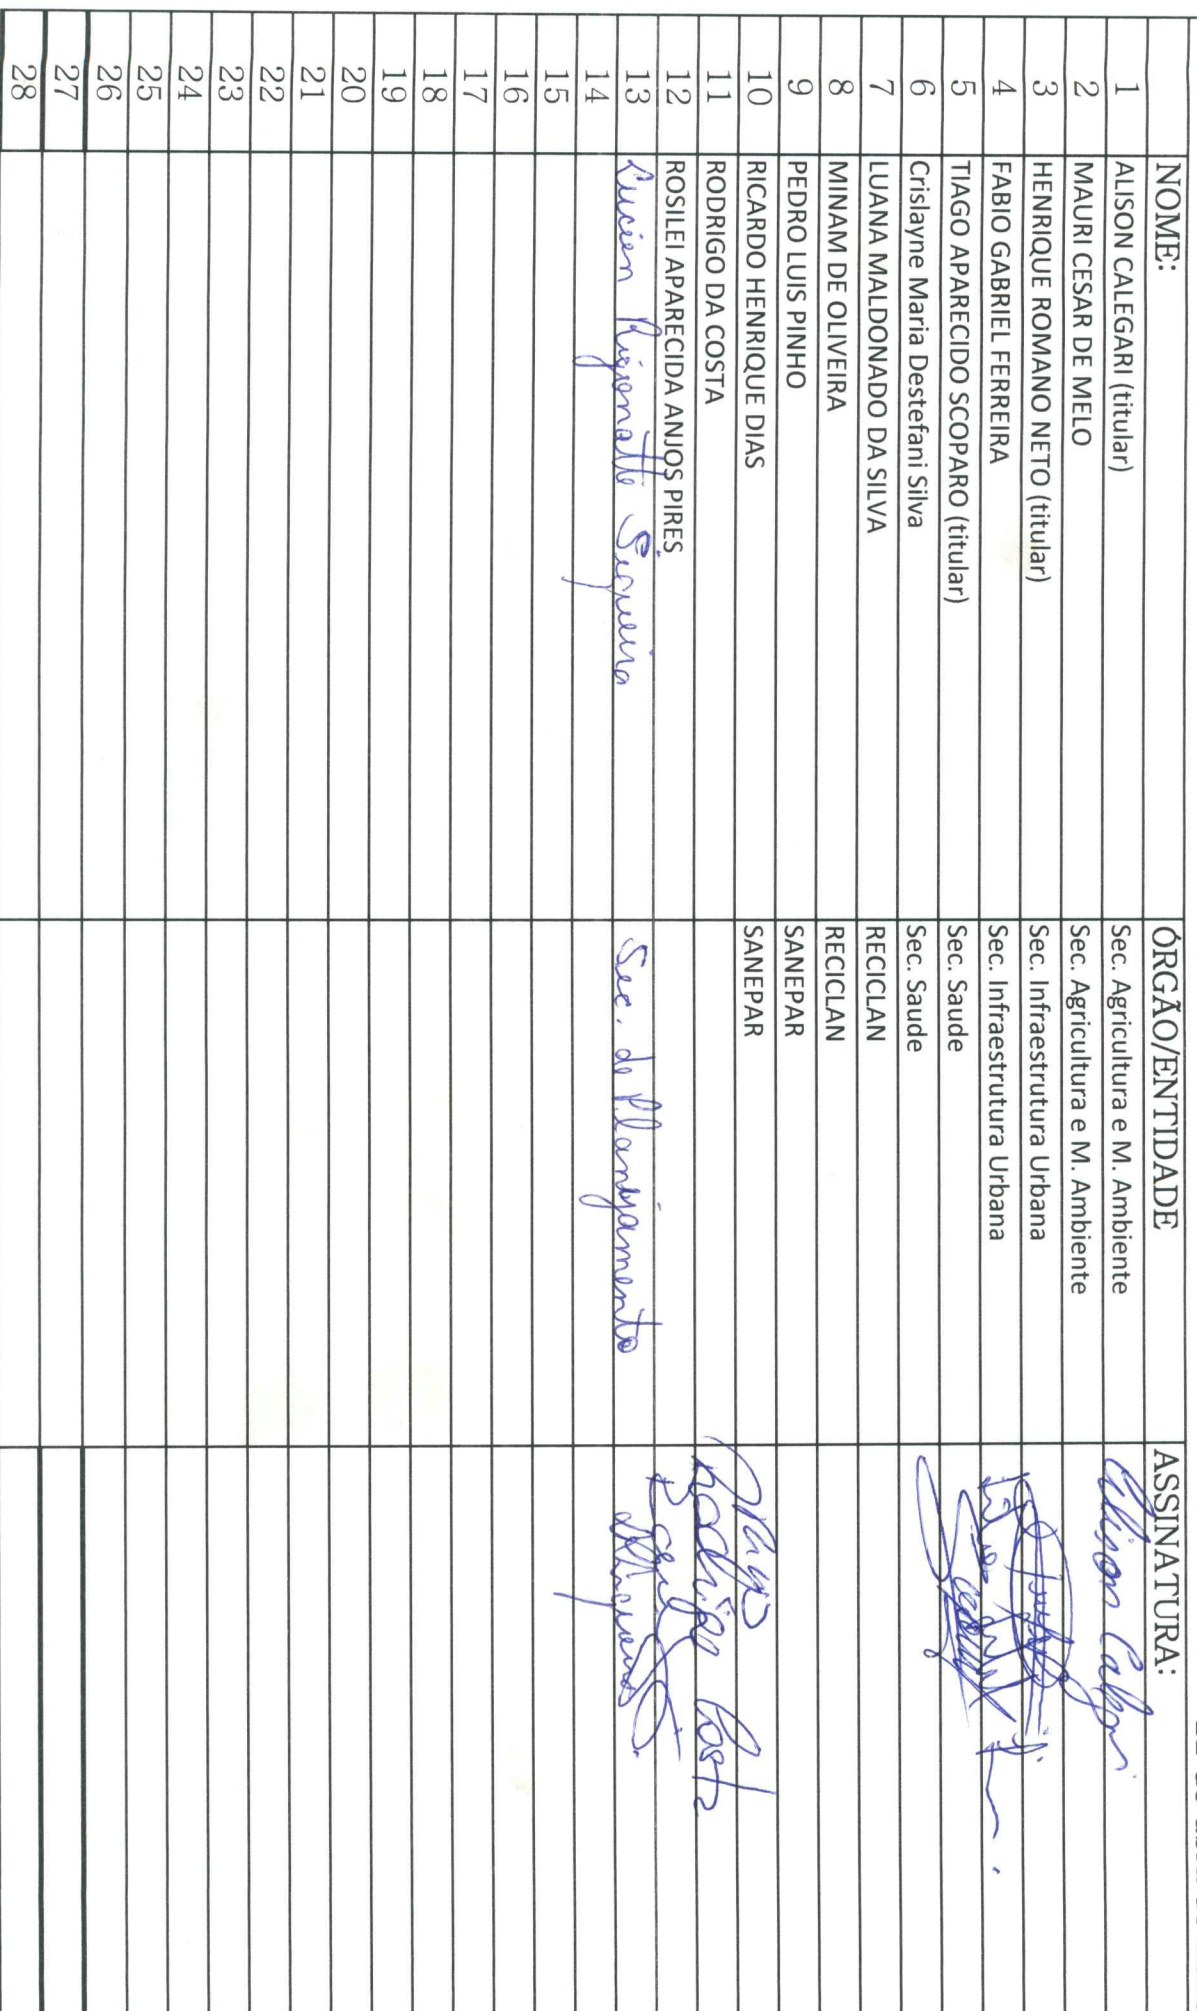 NOME: ÓRGÃO/ENTIDADE ASSINATURA:
1 ALISON CALEGARI (titular) Sec. Agricultura e M. Ambiente Alison
2 MAURI CESAR DE MELO Sec. Agricultura e M. Ambiente
3 HENRIQUE ROMANO NETO (titular) Sec. Infraestrutura Urbana
4 FABIO GABRIEL FERREIRA Sec. Infraestrutura Urbana
5 TIAGO APARECIDO SCOPARO (titular) Sec. Saude
6 Crislayne Maria Destefani Silva Sec. Saude
7 LUANA MALDONADO DA SILVA RECICLAN
8 MINAM DE OLIVEIRA RECICLAN
9 PEDRO LUIS PINHO SANEPAR
10 RICARDO HENRIQUE DIAS SANEPAR
11 RODRIGO DA COSTA Rodrigo Costa
12 ROSILEI APARECIDA ANJOS PIRES
13 Siqueira Sec. de Planejamento
14
15
16
17
18
19
20
21
22
23
24
25
26
27
28